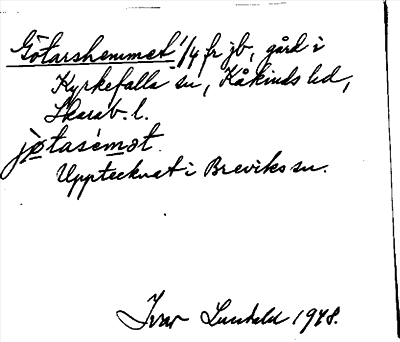 Götarshemmet 1/4 fr jb, gård i
Kyrkefalla sn, Kåkinds hd,
Skarab. l.
jøtasemøt
Upptecknat i Breviks sn.
Ivar Lundahl 1948.